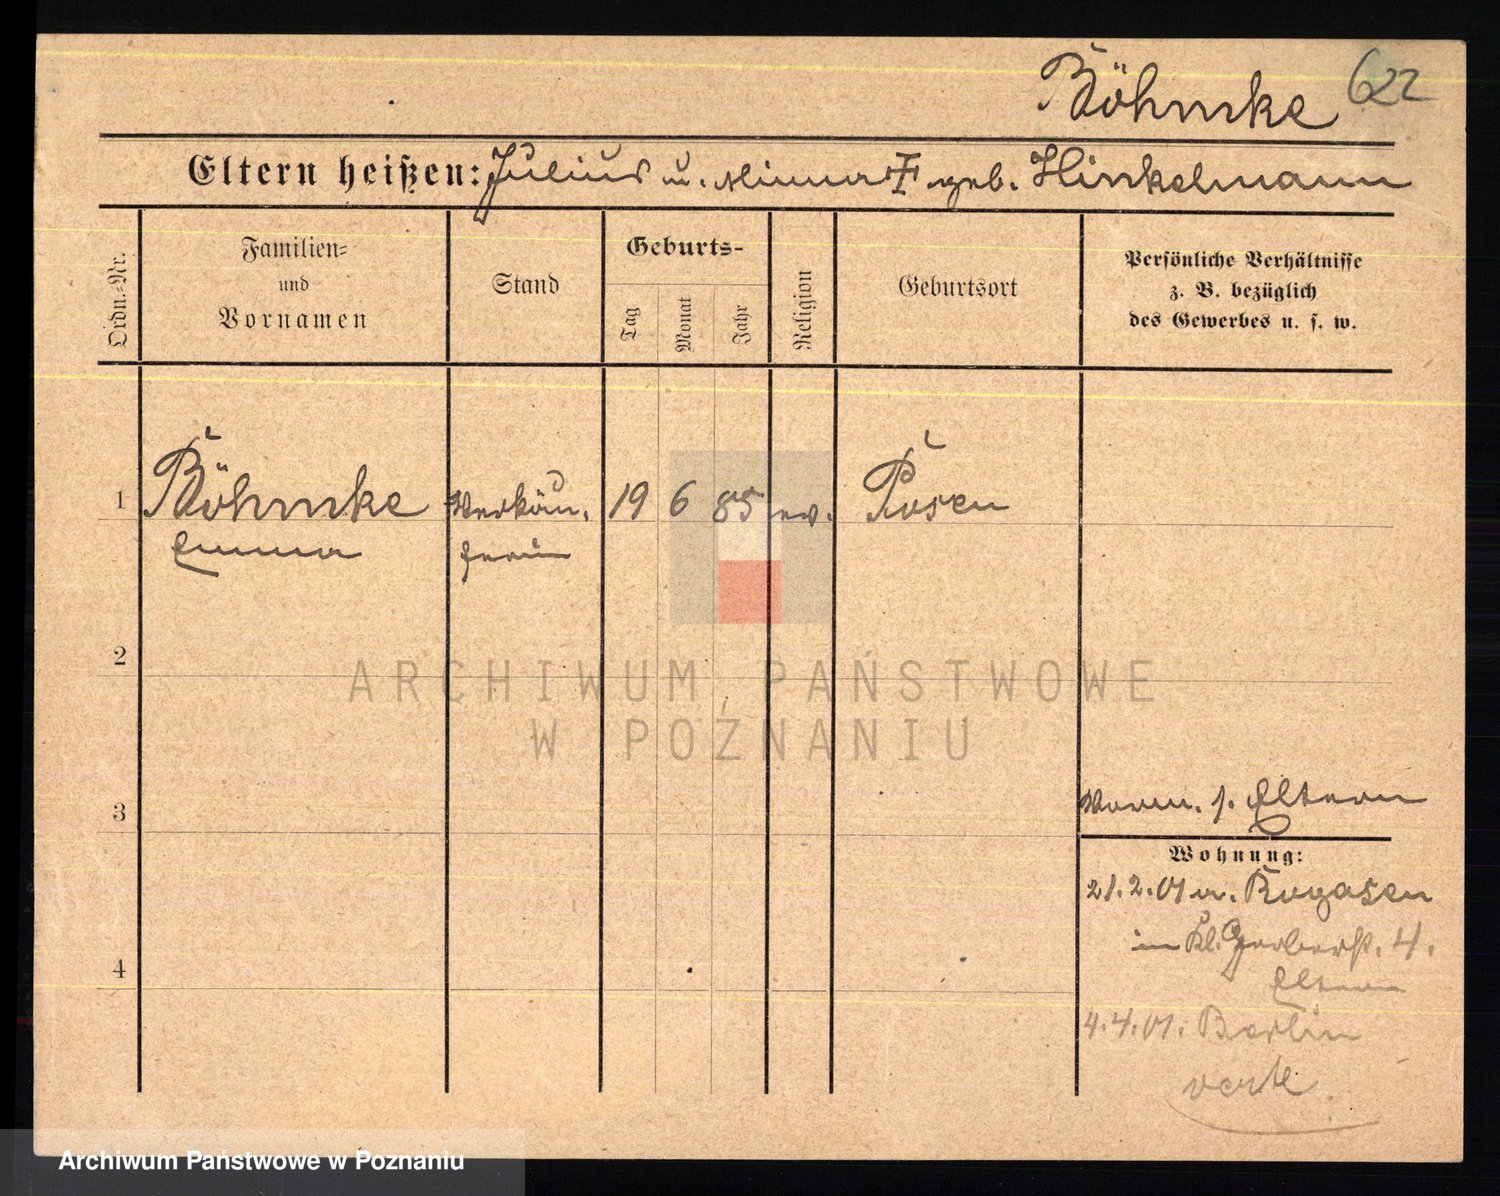 Böhmke 622
Eltern heißen: Julius u. Minna † geb. Hinkelmann
Ordn.-Nr.
Familien-
und
Vornamen
Stand
Geburts-
Tag
Monat
Jahr
Religion
Geburtsort
Persönliche Verhältnisse
z. B. bezüglich
des Gewerbes u. s. w.
1 Böhmke Verkäu. 19 6 85 ev. Posen
Emma ferin
2
3
4
Vorm. s. Eltern
Wohnung:
21.2.01 a. Rogasen
in Kl. Gerberst. 4.
Eltern
4.4.01. Berlin
verte
ARCHIWUM PAŃSTWOWE
W POZNANIU
Archiwum Państwowe w Poznaniu